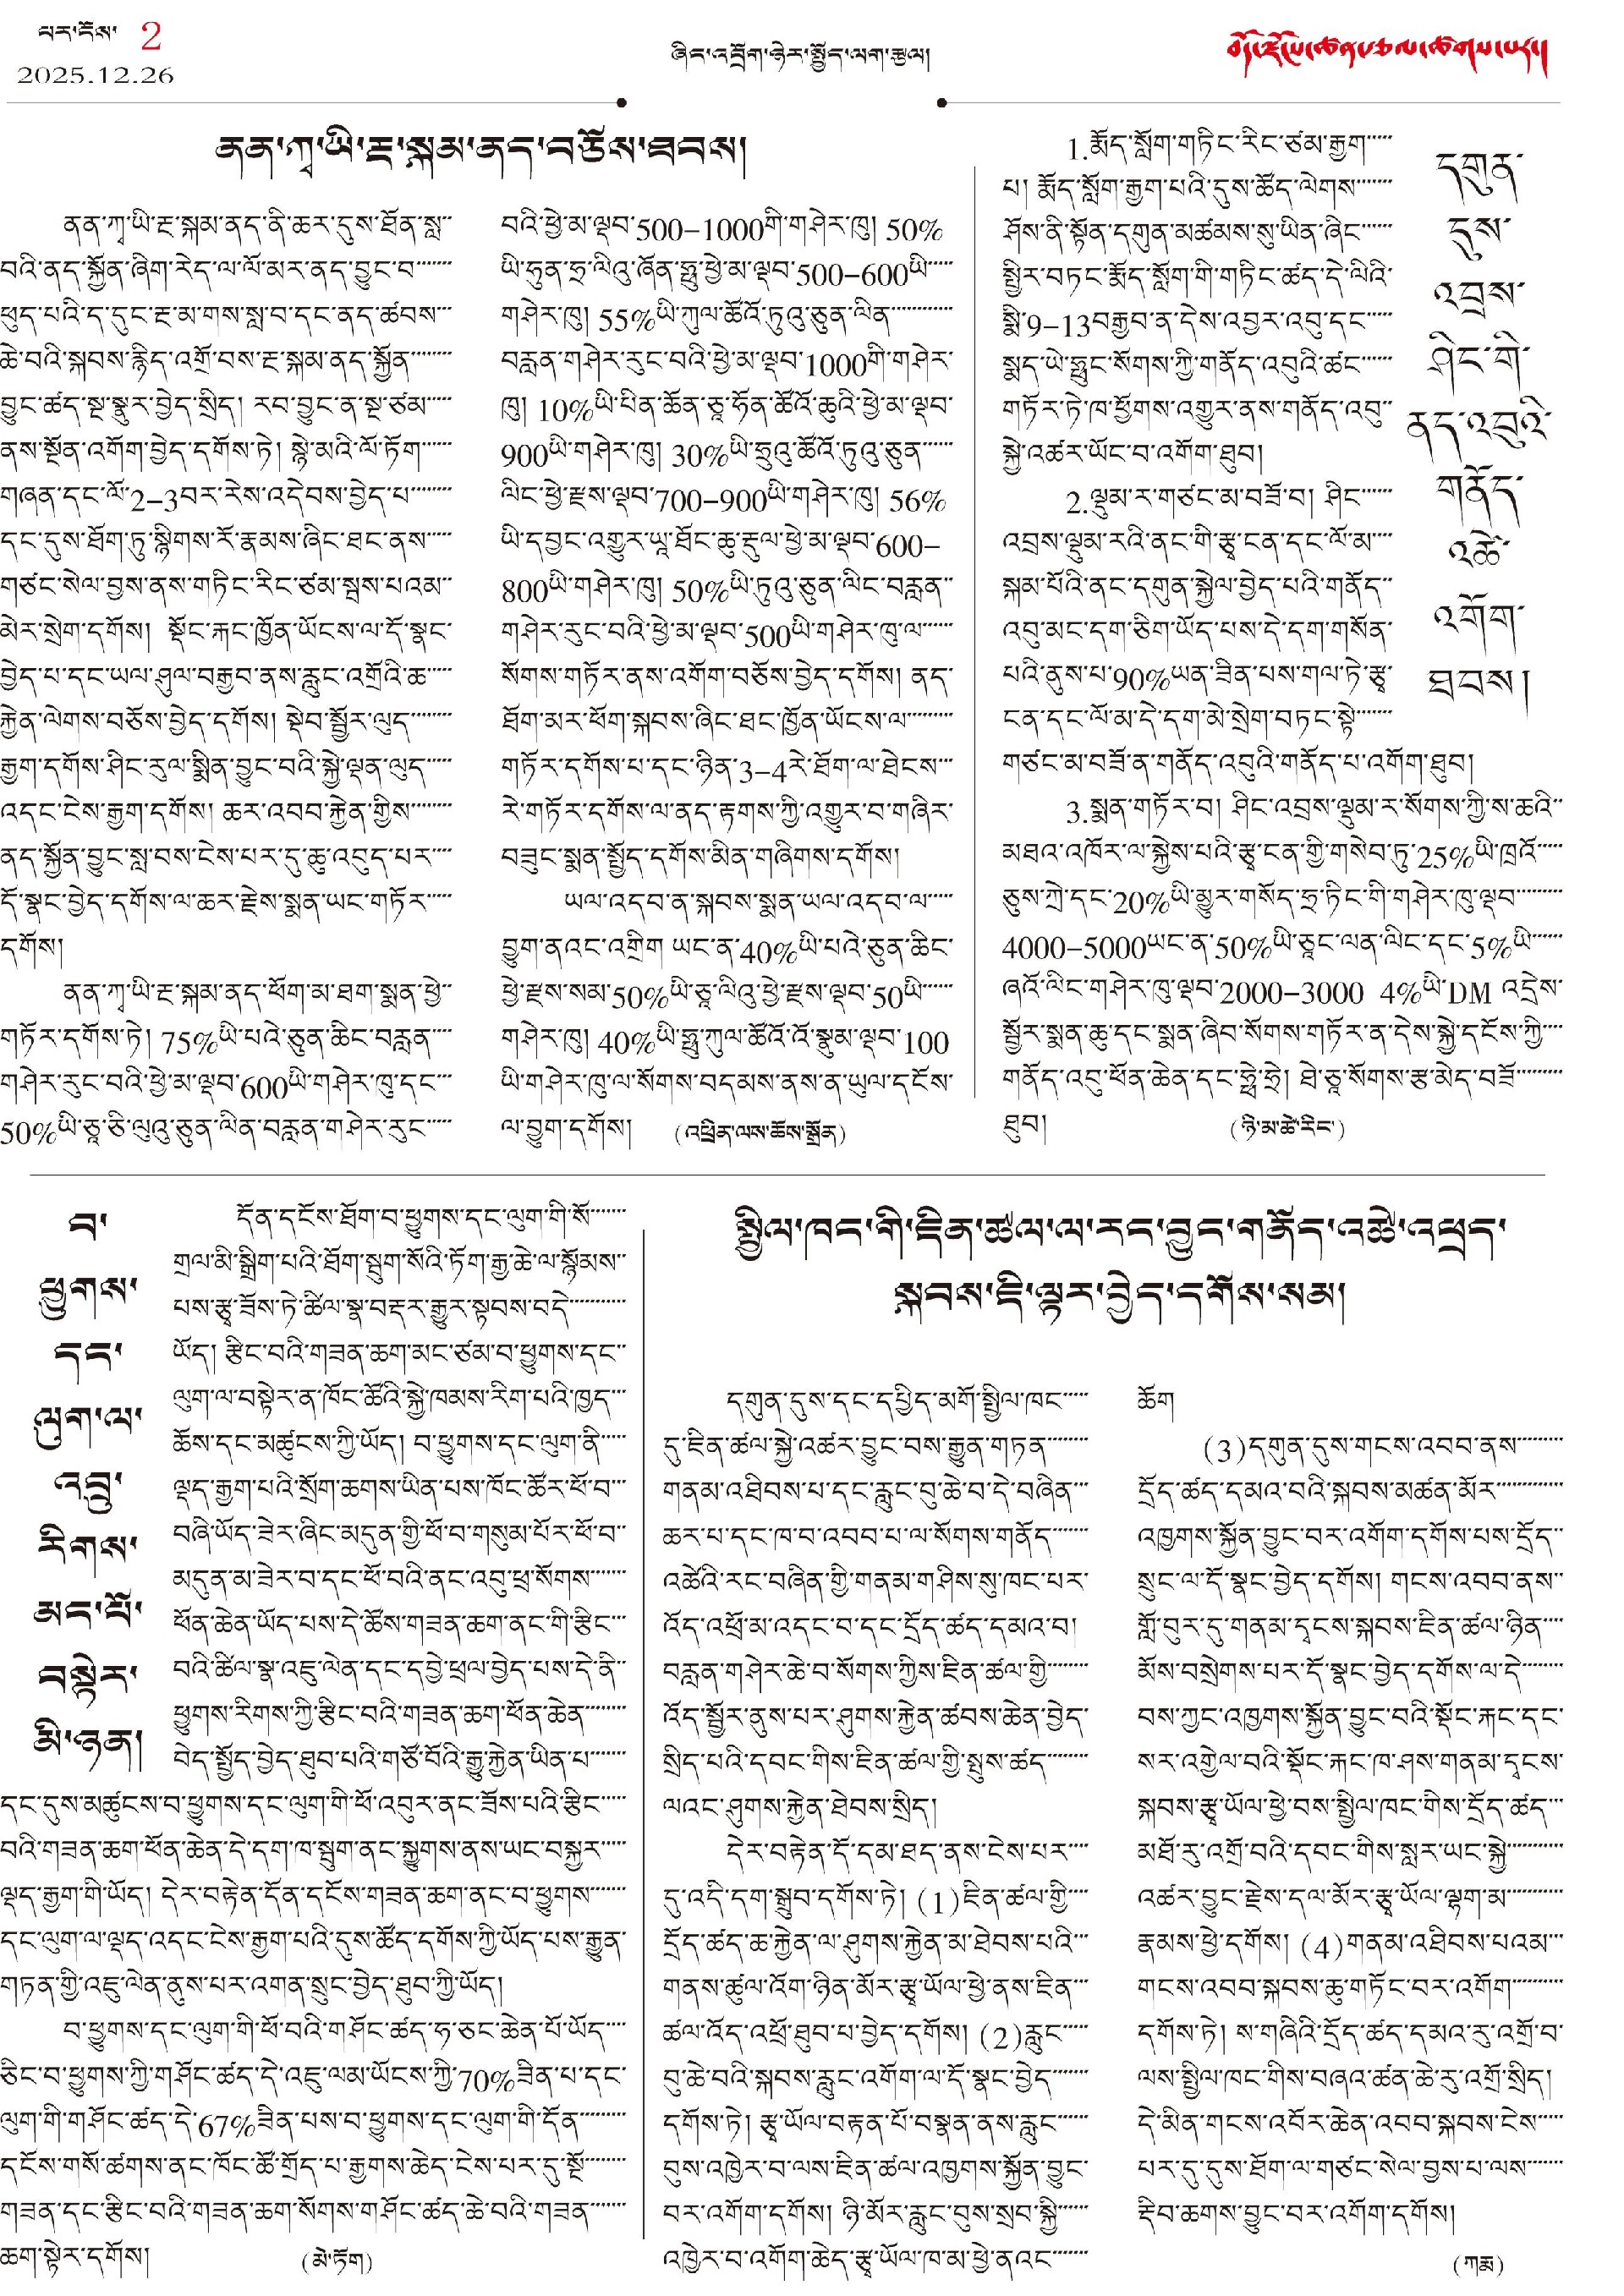 པར་ངོས་ 2
2025.12.26
ཞིང་འབྲོག་ཉེར་སྤྱོད་ལག་རྩལ།
ནན་ཀྭ་ཡི་རྔ་སྐམ་ནད་བཅོས་ཐབས།
ནན་ཀྭ་ཡི་རྔ་སྐམ་ནད་ནི་ཆར་དུས་ཐོན་སླ་
བའི་ནད་སྐྱོན་ཞིག་རེད་ལ་ལོ་མར་ནད་བྱུང་བ་
ཕུད་པའི་ད་དུང་རྔ་མ་གས་སླ་བ་དང་ནད་ཚབས་
ཆེ་བའི་སྐབས་རྙིད་འགྲོ་བས་རྔ་སྐམ་ནད་སྐྱོན་
བྱུང་ཚད་སྔ་སྣུར་བྱེད་སྲིད། རབ་བྱུང་ན་སྔ་ཙམ་
ནས་སྔོན་འགོག་བྱེད་དགོས་ཏེ། སྙེ་མའི་ལོ་ཏོག་
གཞན་དང་ལོ་2-3བར་རེས་འདེབས་བྱེད་པ་
དང་དུས་ཐོག་ཏུ་སྙིགས་རོ་རྣམས་ཞིང་ཐང་ནས་
གཙང་སེལ་བྱས་ནས་གཏིང་རིང་ཙམ་སྦས་པའམ་
མེར་སྲེག་དགོས། སྡོང་རྐང་ཁྱོན་ཡོངས་ལ་དོ་སྣང་
བྱེད་པ་དང་ཡལ་ཤུལ་བརྒྱབ་ནས་རླུང་འགྲོའི་ཆ་
རྐྱེན་ལེགས་བཅོས་བྱེད་དགོས། སྡེབ་སྦྱོར་ལུད་
རྒྱག་དགོས་ཤིང་རུལ་སྨིན་བྱུང་བའི་སྐྱེ་ལྡན་ལུད་
འདང་ངེས་རྒྱག་དགོས། ཆར་འབབ་རྐྱེན་གྱིས་
ནད་སྐྱོན་བྱུང་སླ་བས་ངེས་པར་དུ་ཆུ་འབུད་པར་
དོ་སྣང་བྱེད་དགོས་ལ་ཆར་རྗེས་སྨན་ཡང་གཏོར་
དགོས།
ནན་ཀྭ་ཡི་རྔ་སྐམ་ནད་ཕོག་མ་ཐག་སྨན་ཕྱེ་
གཏོར་དགོས་ཏེ། 75%ཡི་པའེ་ཅུན་ཆིང་བརླན་
གཤེར་རུང་བའི་ཕྱེ་མ་ལྡབ་600ཡི་གཤེར་ཁུ་དང་
50%ཡི་ཅཱ་ཅི་ལུའུ་ཅུན་ལིན་བརླན་གཤེར་རུང་
བའི་ཕྱེ་མ་ལྡབ་500-1000གི་གཤེར་ཁུ། 50%
ཡི་ཧུན་ཧྲ་ལིའུ་ཞོན་ཧྥུ་ཕྱེ་མ་ལྡབ་500-600ཡི་
གཤེར་ཁུ། 55%ཡི་ཀུལ་ཚོའོ་ཏུའུ་ཅུན་ལིན་
བརླན་གཤེར་རུང་བའི་ཕྱེ་མ་ལྡབ་1000གི་གཤེར་
ཁུ། 10%ཡི་པིན་ཆོན་ཅཱ་ཧོན་ཚོའོ་ཆུའི་ཕྱེ་མ་ལྡབ་
900ཡི་གཤེར་ཁུ། 30%ཡི་ཧྲུའུ་ཚོའོ་ཏུའུ་ཅུན་
ལིང་ཕྱེ་རྫས་ལྡབ་700-900ཡི་གཤེར་ཁུ། 56%
ཡི་དབྱང་འགྱུར་ཡཱ་ཐོང་ཆུ་རྡུལ་ཕྱེ་མ་ལྡབ་600-
800ཡི་གཤེར་ཁུ། 50%ཡི་ཏུའུ་ཅུན་ལིང་བརླན་
གཤེར་རུང་བའི་ཕྱེ་མ་ལྡབ་500ཡི་གཤེར་ཁུ་ལ་
སོགས་གཏོར་ནས་འགོག་བཅོས་བྱེད་དགོས། ནད་
ཐོག་མར་ཕོག་སྐབས་ཞིང་ཐང་ཁྱོན་ཡོངས་ལ་
གཏོར་དགོས་པ་དང་ཉིན་3-4རེ་ཐོག་ལ་ཐེངས་
རེ་གཏོར་དགོས་ལ་ནད་རྟགས་ཀྱི་འགྱུར་བ་གཞིར་
བཟུང་སྨན་སྤྱོད་དགོས་མིན་གཞིགས་དགོས།
ཡལ་འདབ་ན་སྐབས་སྨན་ཡལ་འདབ་ལ་
བྱུག་ནའང་འགྲིག ཡང་ན་40%ཡི་པའེ་ཅུན་ཆིང་
ཕྱེ་རྫས་སམ་50%ཡི་ཅཱ་ལིའུ་ཕྱེ་རྫས་ལྡབ་50ཡི་
གཤེར་ཁུ། 40%ཡི་ཧྥུ་ཀུལ་ཚོའོ་འོ་སྣུམ་ལྡབ་100
ཡི་གཤེར་ཁུ་ལ་སོགས་བདམས་ནས་ན་ཡུལ་དངོས་
ལ་བྱུག་དགོས། (འཕྲིན་ལས་ཆོས་སྒྲོན)
དགུན་
དུས་
འབྲས་
ཤིང་གི་
ནད་འབུའི་
གནོད་
འཚེ་
འགོག་
ཐབས།
1.རྨོད་སློག་གཏིང་རིང་ཙམ་རྒྱག་
པ། རྨོད་སློག་རྒྱག་པའི་དུས་ཚོད་ལེགས་
ཤོས་ནི་སྟོན་དགུན་མཚམས་སུ་ཡིན་ཞིང་
སྤྱིར་བཏང་རྨོད་སློག་གི་གཏིང་ཚད་དེ་ལིའི་
སྨི་9-13བརྒྱབ་ན་དེས་འབྱར་འབུ་དང་
སྨད་ཡེ་ཧྥུང་སོགས་ཀྱི་གནོད་འབུའི་ཚང་
གཏོར་ཏེ་ཁ་ཕྱོགས་འགྱུར་ནས་གནོད་འབུ་
སྐྱེ་འཚར་ཡོང་བ་འགོག་ཐུབ།
2.ལྡུམ་ར་གཙང་མ་བཟོ་བ། ཤིང་
འབྲས་ལྡུམ་རའི་ནང་གི་རྩྭ་ངན་དང་ལོ་མ་
སྐམ་པོའི་ནང་དགུན་སྐྱེལ་བྱེད་པའི་གནོད་
འབུ་མང་དག་ཅིག་ཡོད་པས་དེ་དག་གསོན་
པའི་ནུས་པ་90%ཡན་ཟིན་པས་གལ་ཏེ་རྩྭ་
ངན་དང་ལོ་མ་དེ་དག་མེ་སྲེག་བཏང་སྟེ་
གཙང་མ་བཟོ་ན་གནོད་འབུའི་གནོད་པ་འགོག་ཐུབ།
3.སྨན་གཏོར་བ། ཤིང་འབྲས་ལྡུམ་ར་སོགས་ཀྱི་ས་ཆའི་
མཐའ་འཁོར་ལ་སྐྱེས་པའི་རྩྭ་ངན་གྱི་གསེབ་ཏུ་25%ཡི་ཁྲའོ་
ཅུས་ཀྲེ་དང་20%ཡི་མྱུར་གསོད་ཧྲ་ཏིང་གི་གཤེར་ཁུ་ལྡབ་
4000-5000ཡང་ན་50%ཡི་ཅཱུང་ལན་ལིང་དང་5%ཡི་
ཞའོ་ལིང་གཤེར་ཁུ་ལྡབ་2000-3000 4%ཡི་DM འདྲེས་
སྦྱོར་སྨན་ཆུ་དང་སྨན་ཞིབ་སོགས་གཏོར་ན་དེས་སྐྱེ་དངོས་ཀྱི་
གནོད་འབུ་ཕོན་ཆེན་དང་ཧྥེ་ཧྲེ། ཐེ་ཅཱུ་སོགས་རྩ་མེད་བཟོ་
ཐུབ། (ཉི་མ་ཚེ་རིང་)
བ་
ཕྱུགས་
དང་
ལུག་ལ་
འབྲུ་
རིགས་
མང་པོ་
བསྟེར་
མི་ཉན།
དོན་དངོས་ཐོག་བ་ཕྱུགས་དང་ལུག་གི་སོ་
གྲལ་མི་སྒྲིག་པའི་ཐོག་སྦུག་སོའི་ཏོག་རྒྱ་ཆེ་ལ་སྙོམས་
པས་རྩྭ་ཟོས་ཏེ་ཚིལ་སྣ་བརྡར་རྒྱུར་སྟབས་བདེ་
ཡོད། རྩིང་བའི་གཟན་ཆག་མང་ཙམ་བ་ཕྱུགས་དང་
ལུག་ལ་བསྟེར་ན་ཁོང་ཚོའི་སྐྱེ་ཁམས་རིག་པའི་ཁྱད་
ཆོས་དང་མཚུངས་ཀྱི་ཡོད། བ་ཕྱུགས་དང་ལུག་ནི་
ལྡད་རྒྱག་པའི་སྲོག་ཆགས་ཡིན་པས་ཁོང་ཚོར་ཕོ་བ་
བཞི་ཡོད་ཟེར་ཞིང་མདུན་གྱི་ཕོ་བ་གསུམ་པོར་ཕོ་བ་
མདུན་མ་ཟེར་བ་དང་ཕོ་བའི་ནང་འབུ་ཕྲ་སོགས་
ཕོན་ཆེན་ཡོད་པས་དེ་ཚོས་གཟན་ཆག་ནང་གི་རྩིང་
བའི་ཚིལ་སྣ་འཇུ་ལེན་དང་དབྱེ་ཕྲལ་བྱེད་པས་དེ་ནི་
ཕྱུགས་རིགས་ཀྱི་རྩིང་བའི་གཟན་ཆག་ཕོན་ཆེན་
བེད་སྤྱོད་བྱེད་ཐུབ་པའི་གཙོ་བོའི་རྒྱུ་རྐྱེན་ཡིན་པ་
དང་དུས་མཚུངས་བ་ཕྱུགས་དང་ལུག་གི་ཕོ་འབུར་ནང་ཟོས་པའི་རྩིང་
བའི་གཟན་ཆག་ཕོན་ཆེན་དེ་དག་ཁ་སྦུག་ནང་སྐྱུགས་ནས་ཡང་བསྐྱར་
ལྡད་རྒྱག་གི་ཡོད། དེར་བརྟེན་དོན་དངོས་གཟན་ཆག་ནང་བ་ཕྱུགས་
དང་ལུག་ལ་ལྡད་འདང་ངེས་རྒྱག་པའི་དུས་ཚོད་དགོས་ཀྱི་ཡོད་པས་རྒྱུན་
གཏན་གྱི་འཇུ་ལེན་ནུས་པར་འགན་སྲུང་བྱེད་ཐུབ་ཀྱི་ཡོད།
བ་ཕྱུགས་དང་ལུག་གི་ཕོ་བའི་གཤོང་ཚད་ཧ་ཅང་ཆེན་པོ་ཡོད་
ཅིང་བ་ཕྱུགས་ཀྱི་གཤོང་ཚད་དེ་འཇུ་ལམ་ཡོངས་ཀྱི་70%ཟིན་པ་དང་
ལུག་གི་གཤོང་ཚད་དེ་67%ཟིན་པས་བ་ཕྱུགས་དང་ལུག་གི་དོན་
དངོས་གསོ་ཚགས་ནང་ཁོང་ཚོ་གྲོད་པ་རྒྱགས་ཆེད་ངེས་པར་དུ་སྔོ་
གཟན་དང་རྩིང་བའི་གཟན་ཆག་སོགས་གཤོང་ཚད་ཆེ་བའི་གཟན་
ཆག་སྟེར་དགོས། (མེ་ཏོག)
སྤྱིལ་ཁང་གི་ཇིན་ཚལ་ལ་རང་བྱུང་གནོད་འཚེ་འཕྲད་
སྐབས་ཇི་ལྟར་བྱེད་དགོས་སམ།
དགུན་དུས་དང་དཔྱིད་མགོ་སྤྱིལ་ཁང་
དུ་ཇིན་ཚལ་སྐྱེ་འཚར་བྱུང་བས་རྒྱུན་གཏན་
གནམ་འཐིབས་པ་དང་རླུང་བུ་ཆེ་བ་དེ་བཞིན་
ཆར་པ་དང་ཁ་བ་འབབ་པ་ལ་སོགས་གནོད་
འཚེའི་རང་བཞིན་གྱི་གནམ་གཤིས་སུ་ཁང་པར་
འོད་འཕྲོ་མ་འདང་བ་དང་དྲོད་ཚད་དམའ་བ།
བརླན་གཤེར་ཆེ་བ་སོགས་ཀྱིས་ཇིན་ཚལ་གྱི་
འོད་སྦྱོར་ནུས་པར་ཤུགས་རྐྱེན་ཚབས་ཆེན་བྱེད་
སྲིད་པའི་དབང་གིས་ཇིན་ཚལ་གྱི་སྤུས་ཚད་
ལའང་ཤུགས་རྐྱེན་ཐེབས་སྲིད།
དེར་བརྟེན་དོ་དམ་ཐད་ནས་ངེས་པར་
དུ་འདི་དག་སྒྲུབ་དགོས་ཏེ། (1)ཇིན་ཚལ་གྱི་
དྲོད་ཚད་ཆ་རྐྱེན་ལ་ཤུགས་རྐྱེན་མ་ཐེབས་པའི་
གནས་ཚུལ་འོག་ཉིན་མོར་རྩྭ་ཡོལ་ཕྱེ་ནས་ཇིན་
ཚལ་འོད་འཕྲོ་ཐུབ་པ་བྱེད་དགོས། (2)རླུང་
བུ་ཆེ་བའི་སྐབས་རླུང་འགོག་ལ་དོ་སྣང་བྱེད་
དགོས་ཏེ། རྩྭ་ཡོལ་བརྟན་པོ་བསྣན་ནས་རླུང་
བུས་འཁྱེར་བ་ལས་ཇིན་ཚལ་འཁྱགས་སྐྱོན་བྱུང་
བར་འགོག་དགོས། ཉི་མོར་རླུང་བུས་སྲབ་སྐྱི་
འཁྱེར་བ་འགོག་ཆེད་རྩྭ་ཡོལ་ཁ་མ་ཕྱེ་ནའང་
ཆོག
(3)དགུན་དུས་གངས་འབབ་ནས་
དྲོད་ཚད་དམའ་བའི་སྐབས་མཚན་མོར་
འཁྱགས་སྐྱོན་བྱུང་བར་འགོག་དགོས་པས་དྲོད་
སྲུང་ལ་དོ་སྣང་བྱེད་དགོས། གངས་འབབ་ནས་
གློ་བུར་དུ་གནམ་དྭངས་སྐབས་ཇིན་ཚལ་ཉིན་
མོས་བསྲེགས་པར་དོ་སྣང་བྱེད་དགོས་ལ་དེ་
བས་ཀྱང་འཁྱགས་སྐྱོན་བྱུང་བའི་སྡོང་རྐང་དང་
སར་འགྱེལ་བའི་སྡོང་རྐང་ཁ་ཤས་གནམ་དྭངས་
སྐབས་རྩྭ་ཡོལ་ཕྱེ་བས་སྤྱིལ་ཁང་གིས་དྲོད་ཚད་
མཐོ་རུ་འགྲོ་བའི་དབང་གིས་སླར་ཡང་སྐྱེ་
འཚར་བྱུང་རྗེས་དལ་མོར་རྩྭ་ཡོལ་ལྷག་མ་
རྣམས་ཕྱེ་དགོས། (4)གནམ་འཐིབས་པའམ་
གངས་འབབ་སྐབས་ཆུ་གཏོང་བར་འགོག་
དགོས་ཏེ། ས་གཞིའི་དྲོད་ཚད་དམའ་རུ་འགྲོ་བ་
ལས་སྤྱིལ་ཁང་གིས་བཞའ་ཚན་ཆེ་རུ་འགྲོ་སྲིད།
དེ་མིན་གངས་འབོར་ཆེན་འབབ་སྐབས་ངེས་
པར་དུ་དུས་ཐོག་ལ་གཙང་སེལ་བྱས་པ་ལས་
རྡིབ་ཆགས་བྱུང་བར་འགོག་དགོས།
(ཀརྨ)